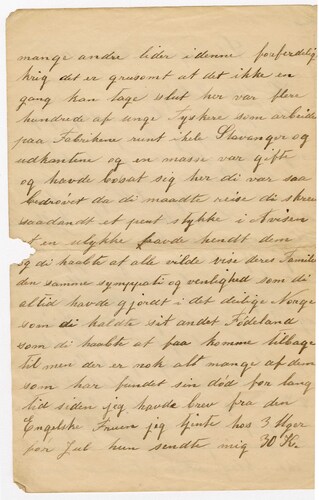 mange andre lider i denne forferdelig
krig det er grusomt at det ikke en
gang kan tage slut her var flere
hundrede af unge Tyskere som arbeide
paa Fabrikene rent i hele Stavanger og
udkantene og en masse var gifte
og havde bosat sig her di var saa
bedrøvet da di maadte reise di skrev
saadandt et pent stykke i Avisen
at en ulykke havde hendt dem
og di haabte at alle vilde vise deres Familie
den samme sympati og venlighed som di
altid havde gjordt i det deilige Norge
som di holdte sit andet Fødeland
som di haabte at faa komme tilbage
til men der er nok alt mange af dem
som har fundet sin død for lang
tid siden jeg havde brev fra den
Engelske Fruen jeg tjente hos 3 Uger
for Jul hun sendte mig 30 Kr